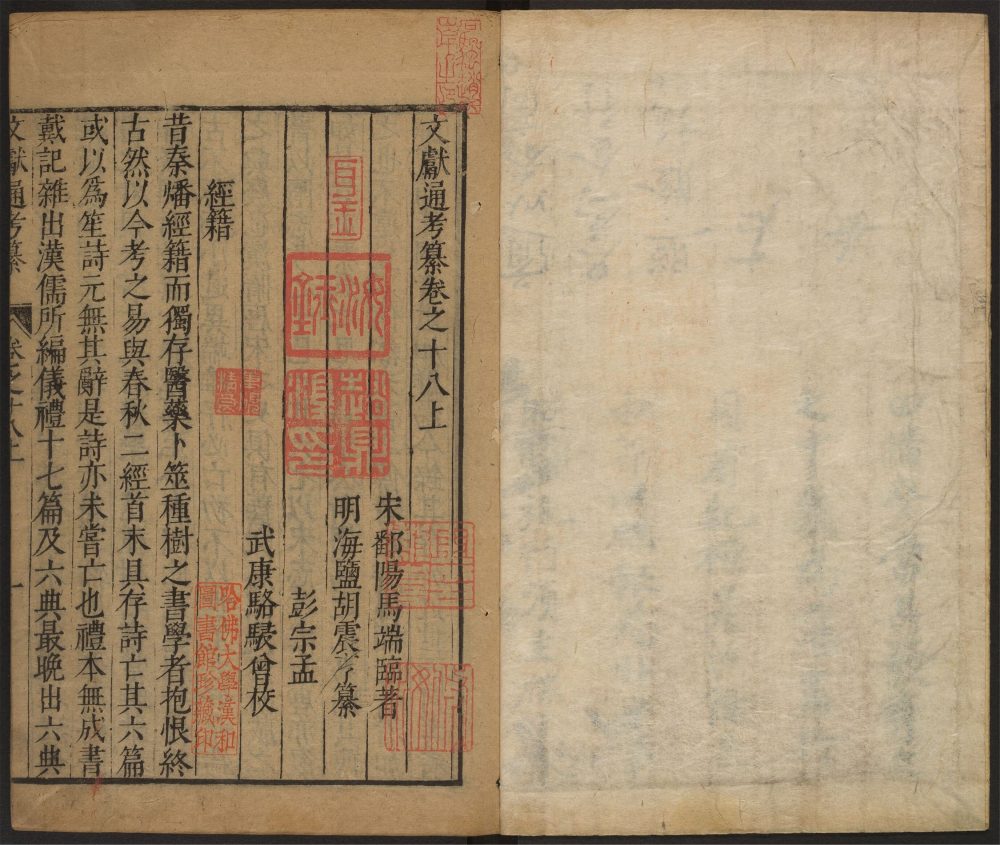 文獻通考纂卷之十八上
宋鄱陽馬端臨著
明海鹽胡震亨纂
彭宗孟
武康駱駸曾校
經籍
昔秦燔經籍而獨存醫藥卜筮種樹之書學者抱恨終
古然以今考之易與春秋二經首末具存詩亡其六篇
或以爲笙詩元無其辭是詩亦未嘗亡也禮本無成書
戴記雜出漢儒所編儀禮十七篇及六典最晚出六典
文獻通考纂 卷之十八上 一
哈佛大學漢和
圖書館珍藏印